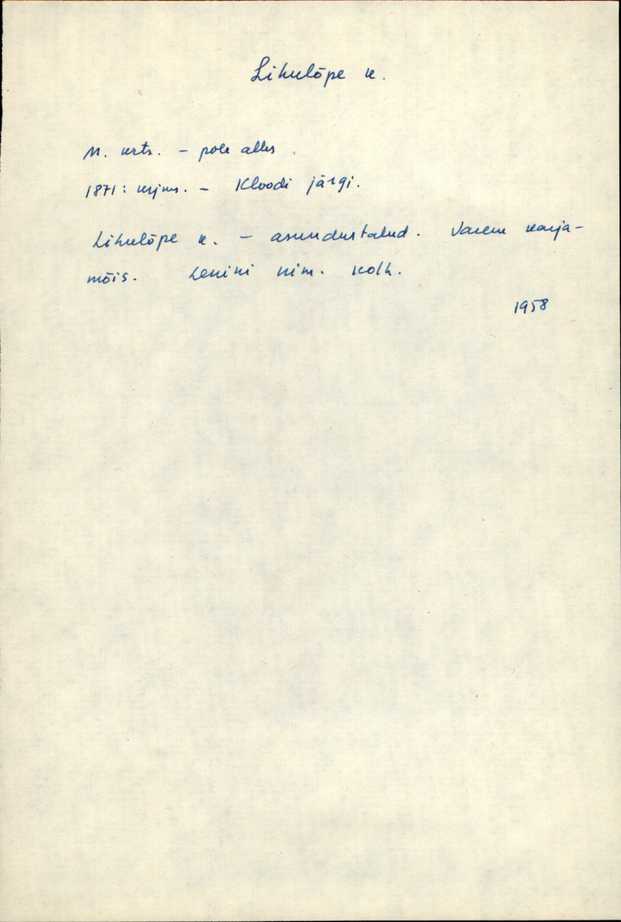 Lihulõpe k.
M. krts. - pole alles.
1871: krjms. - Kloodi järgi.
Lihulõpe k. - asundustalud. Varem karja-
mõis. Lenini nim. kolh.
1958